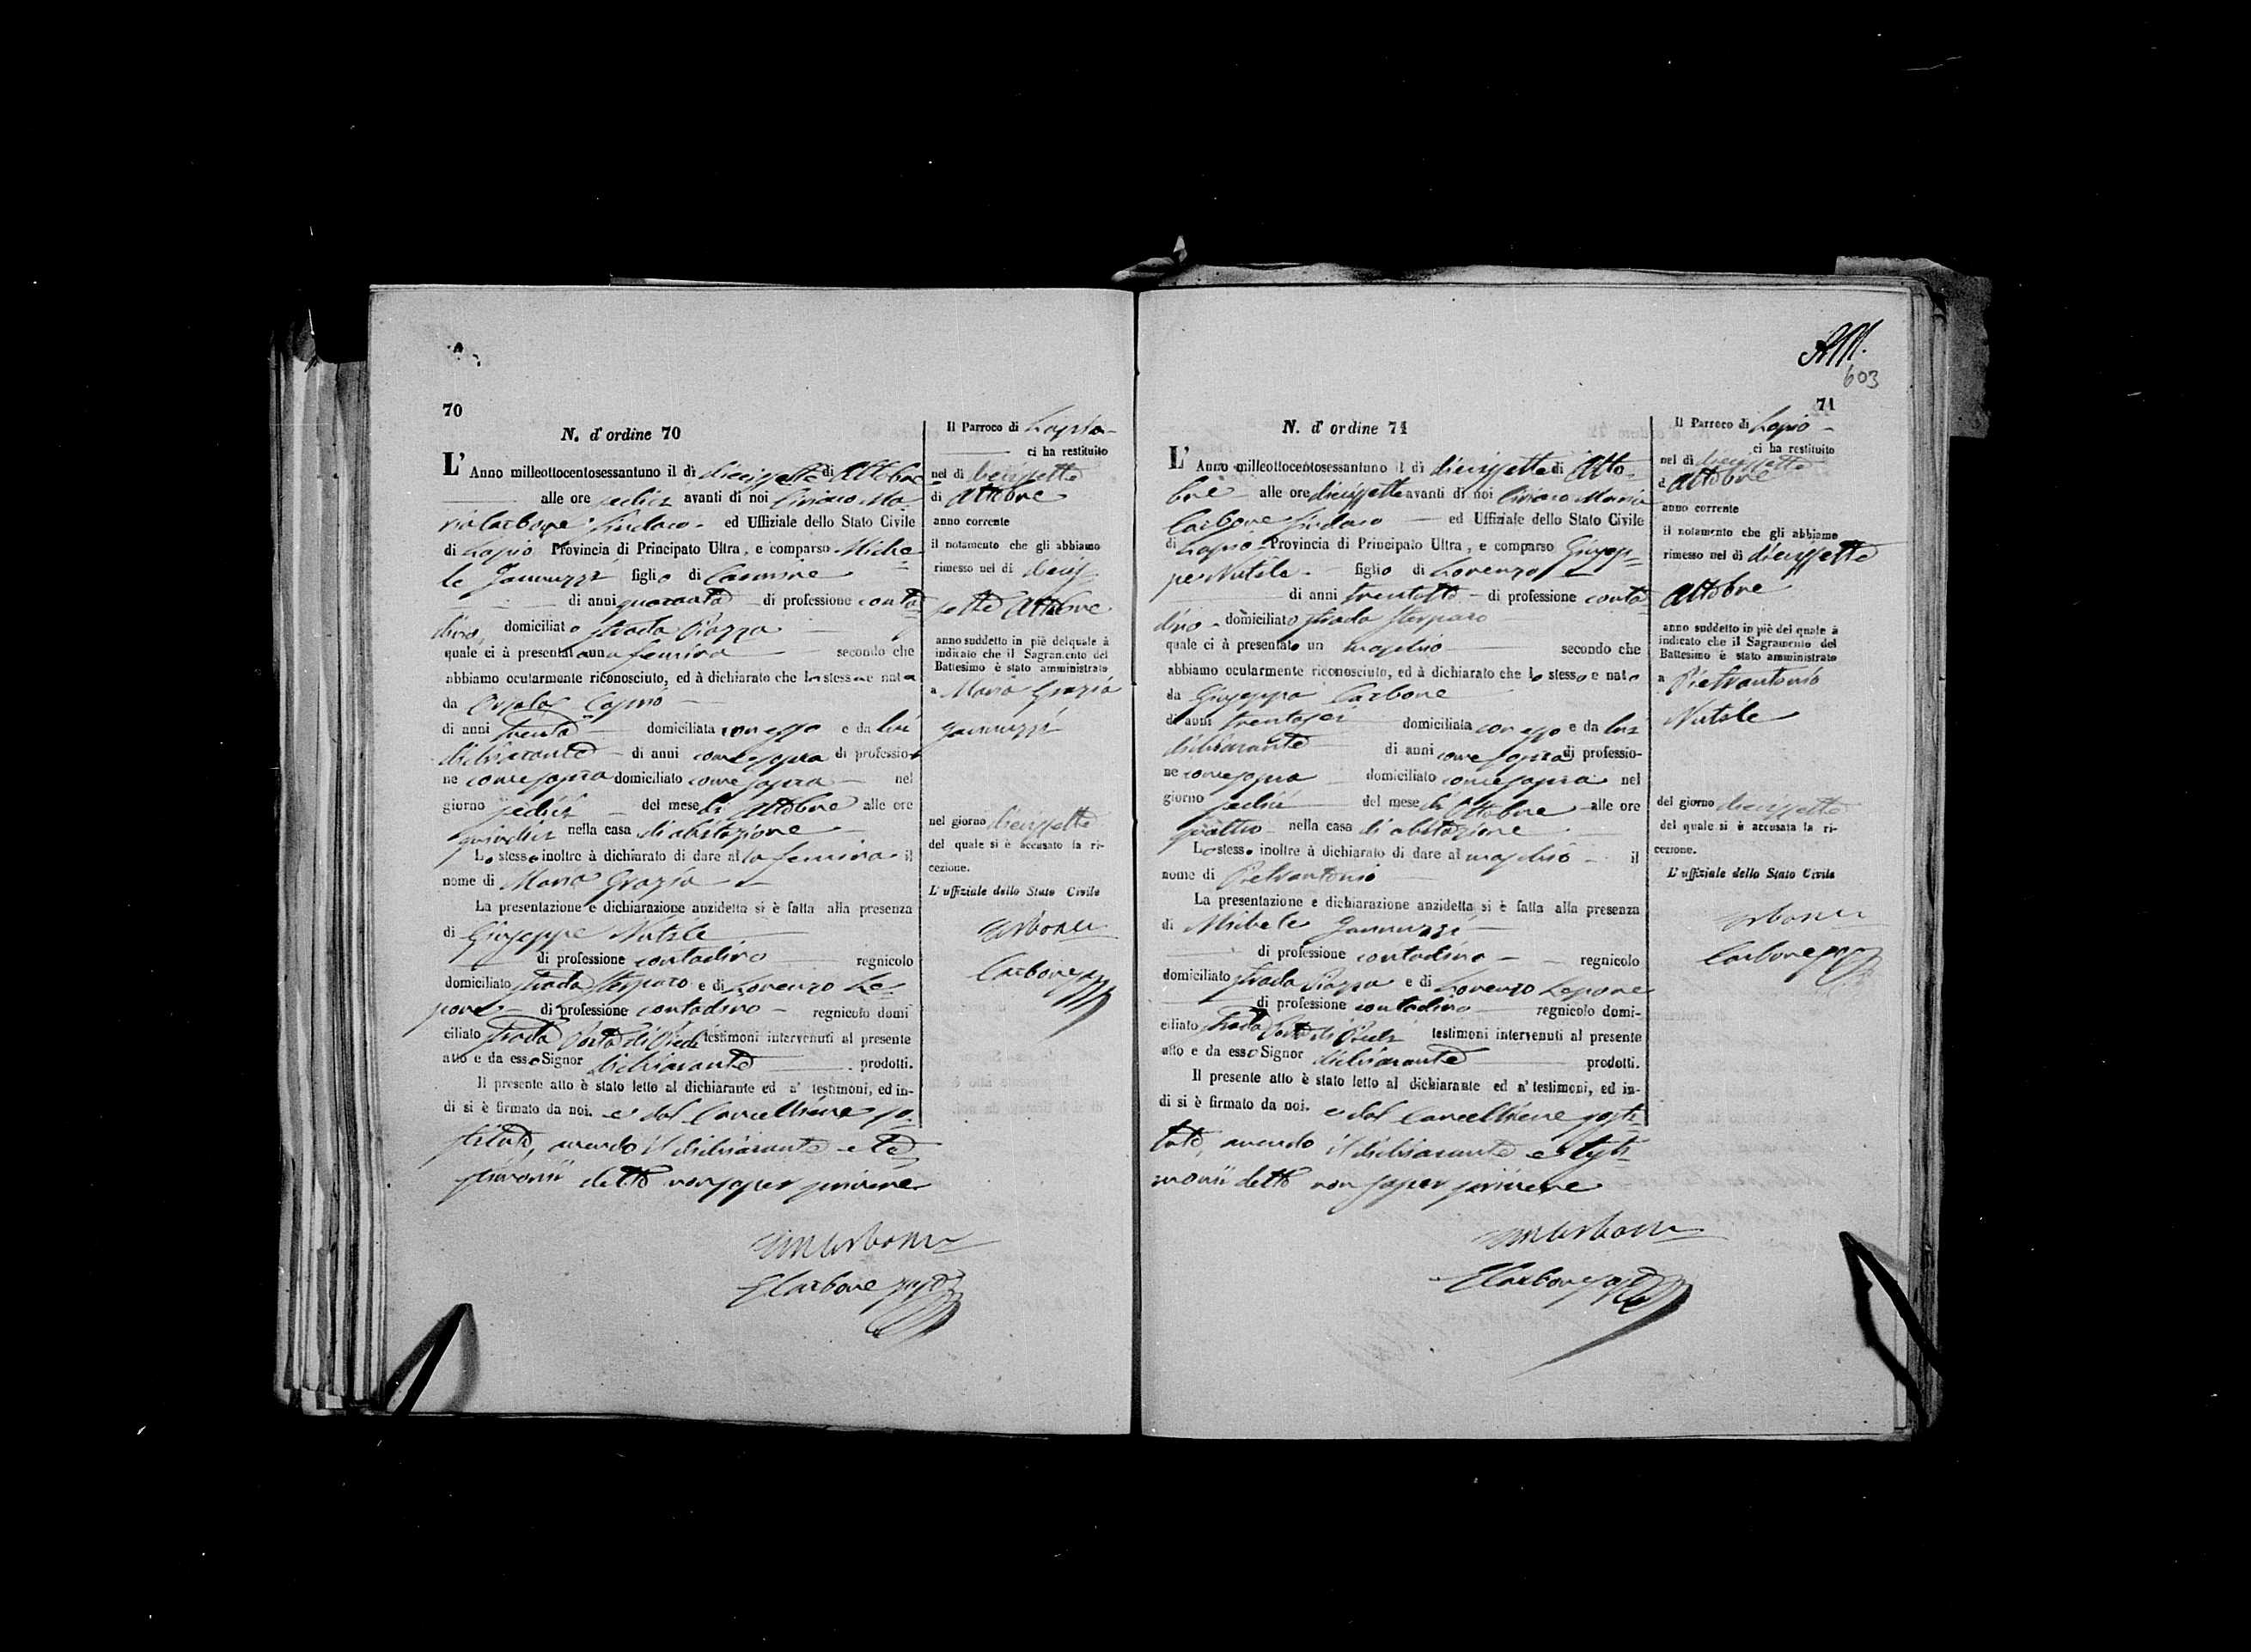 70
N. d'ordine 70
L'Anno milleottocentosessantuno il dì diciassette di Ottobre
alle ore sedici avanti di noi Ciriaco Ma-
ria Carbone Sindaco ed Uffiziale dello Stato Civile
di Lapio Provincia di Principato Ultra, e comparso Miche-
le Jannuzzi figlio di Carmine
di anni quaranta di professione conta-
dino, domiciliato strada Piazza
quale ci à presentato una femina secondo che
abbiamo ocularmente riconosciuto, ed à dichiarato che la stessa e nata
da Orsola
di anni trenta domiciliata con esso e da lui
dichiarante di anni come sopra di professio-
ne come sopra domiciliato come sopra nel
giorno sedici del mese di Ottobre alle ore
quindici nella casa di abitazione
Lo stesso inoltre à dichiarato di dare al la femina il
nome di Maria Grazia
La presentazione e dichiarazione anzidetta si è fatta alla presenza
di Giuseppe Nutile
di professione contadino regnicolo
domiciliato strada Sterparo e di Lorenzo Le-
pore di professione contadino regnicolo domi
ciliato strada Porta di testimoni intervenuti al presente
atto e da esso Signor dichiarante prodotti.
Il presente atto è stato letto al dichiarante ed a' testimoni, ed in-
di si è firmato da noi. e dal Cancelliere so-
stituto, avendo il dichiarante e te-
stimonii detto non saper scrivere
Carbone
Carbone
Il Parroco di Lapio
ci ha restituito
nel di diciassette
di Ottobre
anno corrente
il notamento che gli abbiamo
rimesso nel di dicias-
sette Ottobre
anno suddetto in piè del quale à
indicato che il Sagramento del
Battesimo è stato amministrato
a Maria Grazia
Jannuzzi
nel giorno diciassette
del quale si è accusato la ri-
cezione.
L'uffiziale dello Stato Civile
Carbone
Carbone
603
71
N. d'ordine 71
L'Anno milleottocentosessantuno il di diciassette di Otto-
bre alle ore diciassette avanti di noi Ciriaco Maria
Carbone Sindaco ed Uffiziale dello Stato Civile
di Lapio Provincia di Principato Ultra, e comparso Giusep-
pe Nutile figlio di Lorenzo
di anni trentotto di professione conta
dino domiciliato strada Sterparo
quale ci à presentato un maschio secondo che
abbiamo ocularmente riconosciuto, ed à dichiarato che lo stesso e nato
da Giuseppa Carbone
di anni trentasei domiciliata con esso e da lui
dichiarante di anni come sopra di professio-
ne come sopra domiciliato come sopra nel
giorno sedici del mese di Ottobre alle ore
quattro nella casa di abitazione
Lo stesso inoltre à dichiarato di dare al maschio il
nome di Pietrantonio
La presentazione e dichiarazione anzidetta si è fatta alla presenza
di Michele Jannuzzi
di professione contadino regnicolo
domiciliato strada Piazza e di Lorenzo Lepore
di professione contadino regnicolo domi-
ciliato strada Porta di testimoni intervenuti al presente
atto e da esso Signor dichiarante prodotti.
Il presente atto è stato letto al dichiarante ed a' testimoni, ed in-
di si è firmato da noi. e dal Cancelliere sosti-
tuto, avendo il dichiarante e testi-
monii detto non saper scrivere
Carbone
Carbone
Il Parroco di Lapio
ci ha restituito
nel di diciassette
d Ottobre
anno corrente
il notamento che gli abbiamo
rimesso nel di diciassette
Ottobre
anno suddetto in piè del quale à
indicato che il Sagramento del
Battesimo è stato amministrato
a Pietrantonio
Nutile
del giorno diciassette
del quale si è accusata la ri-
cezione.
L'uffiziale dello Stato Civile
Carbone
Carbone